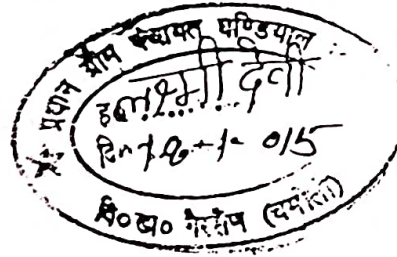 प्रधान ग्राम पंचायत घण्डियाल
ह० लक्ष्मी देवी
दि०
वि०ख० गैरसैंण (चमोली)